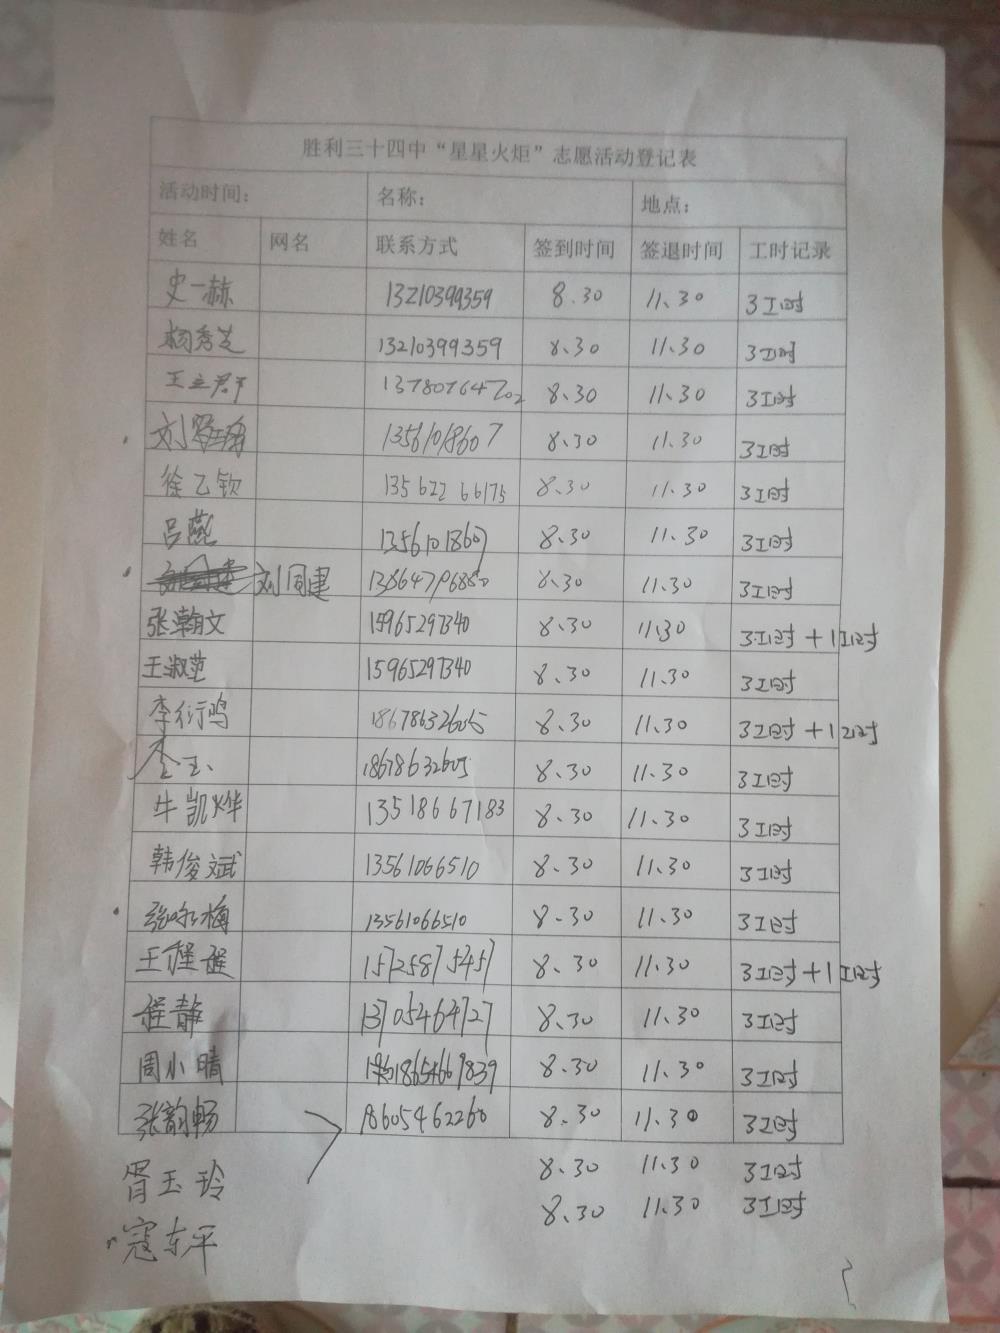 胜利三十四中“星星火炬”志愿活动登记表
活动时间： 名称： 地点：
姓名 网名 联系方式 签到时间 签退时间 工时记录
史一赫 13210399359 8.30 11.30 3工时
杨秀芝 13210399359 8.30 11.30 3工时
王立君 8.30 11.30 3工时
刘 13561018607 8.30 11.30 3工时
徐乙钦 13562266175 8.30 11.30 3工时
吕燕 13561018607 8.30 11.30 3工时
刘同建 8.30 11.30 3工时
张瀚文 15965297340 8.30 11.30 3工时+1工时
王淑范 15965297340 8.30 11.30 3工时
李衍鸣 18678632605 8.30 11.30 3工时+1工时
18678632605 8.30 11.30 3工时
牛凯烨 13518667183 8.30 11.30 3工时
韩俊斌 13561066510 8.30 11.30 3工时
张咏梅 13561066510 8.30 11.30 3工时
王程 15725875457 8.30 11.30 3工时+1工时
程静 13705464727 8.30 11.30 3工时
周小晴 8.30 11.30 3工时
张韵畅 18605462260 8.30 11.30 3工时
胥玉玲 8.30 11.30 3工时
寇东平 8.30 11.30 3工时